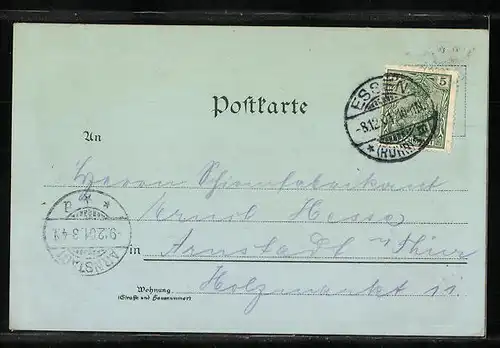 5
ESSEN
-8.12.01.10-11N.
*(RUHR)
Postkarte
An
Herrn Schirmfabrikant
Ernst Hesse
in Arnstadt i/Thür
Holzmarkt 11.
ARNSTADT
-9.12.01.3-4N.
Wohnung
(Straße und Hausnummer)